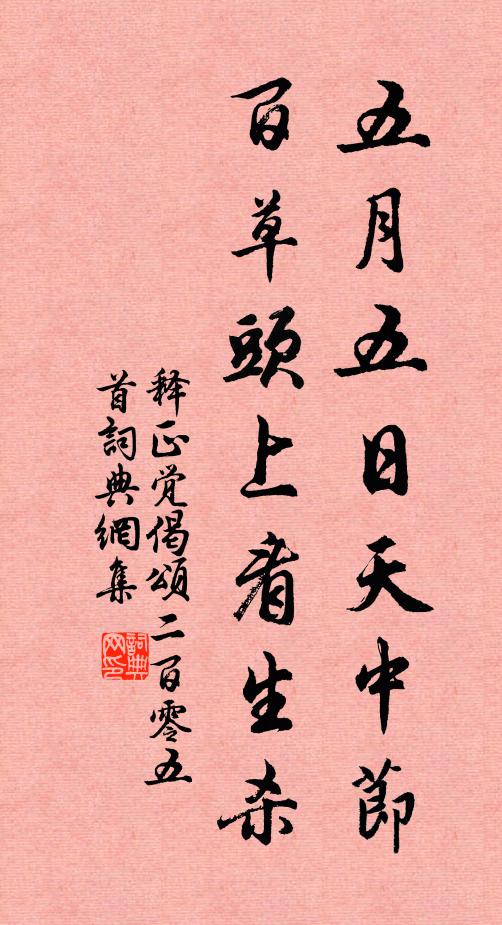 五月五日天中節
百草頭上看生杀
释正覚偈頌二百零五
首詞典網集
詞典网印